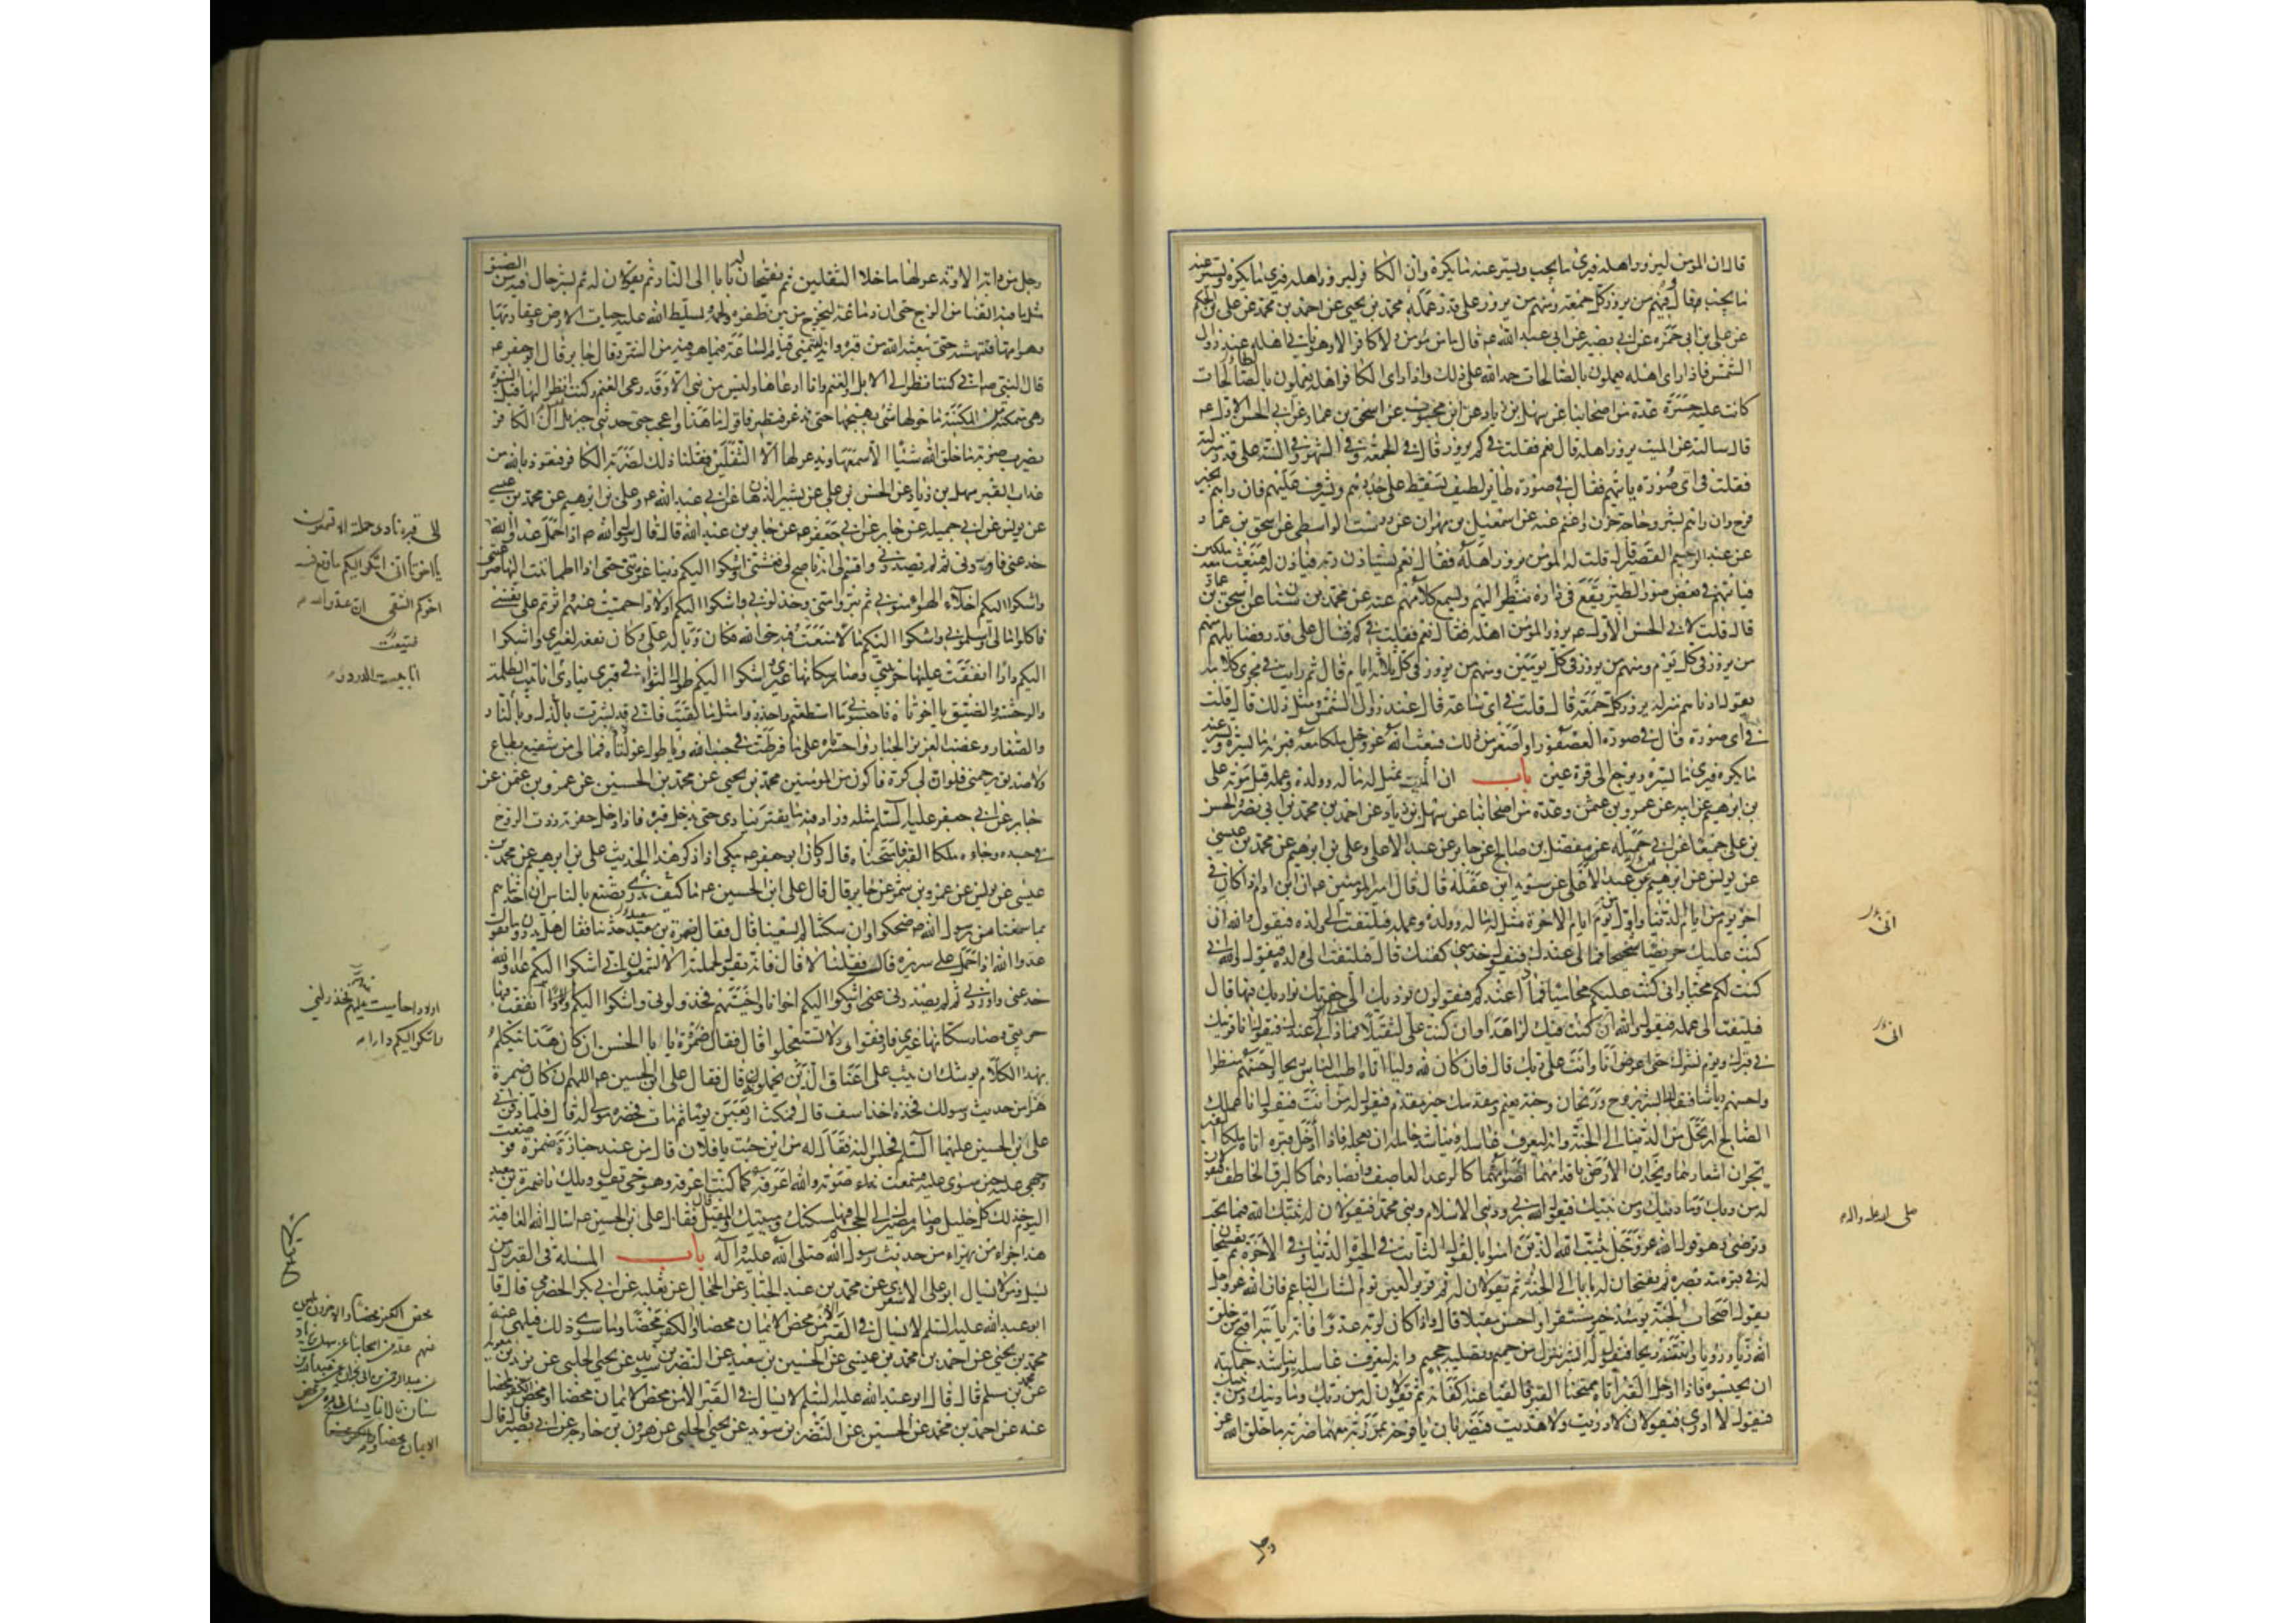 قال ان المؤمن ليزور اهله فيرى ما يحب ويستر عنه ما يكره وان الكافر ليزور اهله فيرى ما يكره ويستر عنه
ما يحب قال ومنهم من يزور كل جمعة ومنهم من يزور على قدر عمله محمد بن يحيى عن احمد بن محمد عن على بن الحكم
عن على بن ابى حمزه عن ابى بصير عن ابى عبد الله عه قال ما من مؤمن ولا كافر الا وهو ياتى اهله عند زوال
الشمس فاذا راى اهله يعملون بالصالحات حمد الله على ذلك واذا راى الكافر اهله يعملون بالصالحات
كانت عليه حسرة عدة من اصحابنا عن سهل بن زياد عن ابن محبوب عن اسحق بن عمار عن ابى الحسن الاول عه
قال سالته عن الميت يزور اهله قال نعم فقلت فى كم يزور قال فى الجمعة وفى الشهر وفى السنة على قدر منزلته
فقلت فى اى صورة ياتيهم فقال فى صورة طاير لطيف يسقط على جدرهم ويشرف عليهم فان راهم بخير
فرح وان راهم بشر وحاجة حزن واغتم عنه عن اسمعيل بن مهران عن درست الواسطى عن اسحق بن عمار
عن عبد الرحيم القصير قال قلت له المؤمن يزور اهله فقال نعم يستاذن ربه فياذن له فيبعث معه ملكين
فياتيهم فى بعض صور الطير يقع فى داره ينظر اليهم ويسمع كلامهم عنه عن محمد بن سنان عن اسحق بن عمار
قال قلت لابى الحسن الاول عه يزور المؤمن اهله فقال نعم فقلت فى كم فقال على قدر فضايلهم منهم
من يزور فى كل يوم ومنهم من يزور فى كل يومين ومنهم من يزور فى كل ثلاثة ايام قال ثم رايت فى مجرى كلامه
يقول ادناهم منزلة يزور كل جمعة قال قلت فى اى ساعة قال عند زوال الشمس ومثل ذلك قال قلت
فى اى صورة قال فى صورة العصفور او اصغر من ذلك فيبعث الله عز وجل معه ملكا فيريه ما يسره ويستر عنه
ما يكره فيرى ما يسره ويرجع الى قرة عين باب ان الميت يمثل له ماله وولده وعمله قبل موته على
بن ابرهيم عن ابيه عن عمرو بن عثمن وعدة من اصحابنا عن سهل بن زياد عن احمد بن محمد بن ابى نصر والحسن
بن على جميعا عن ابى جميلة عن مفضل بن صالح عن جابر عن عبد الاعلى وعلى بن ابرهيم عن محمد بن عيسى
عن يونس عن ابرهيم عن عبد الاعلى عن سويد ابن غفلة قال قال امير المؤمنين عه ان ابن ادم اذا كان فى
اخر يوم من ايام الدنيا واول يوم من ايام الاخرة مثل له ماله وولده وعمله فيلتفت الى ماله فيقول والله انى
كنت عليك حريصا شحيحا فما لى عندك فيقول خذ منى كفنك قال فيلتفت الى ولده فيقول والله انى
كنت لكم محبا وانى كنت عليكم محاميا فماذا عندكم فيقولون نوديك الى حفرتك نواريك فيها قال
فيلتفت الى عمله فيقول والله ان كنت فيك لزاهدا وان كنت على لثقيلا فماذا عندك فيقول انا قرينك
فى قبرك ويوم نشرك حتى اعرض انا وانت على ربك قال فان كان لله وليا اتاه اطيب الناس ريحا واحسنهم منظرا
واحسنهم رياشا فقال ابشر بروح وريحان وجنة نعيم ومقدمك خير مقدم فيقول له من انت فيقول انا عملك
الصالح ارتحل من الدنيا الى الجنة وانه ليعرف غاسله ويناشد حامله ان يعجله فاذا ادخل قبره اتاه ملكا القبر
يجران اشعارهما ويخدان الارض باقدامهما اصواتهما كالرعد العاصف وابصارهما كالبرق الخاطف فيقولان
له من ربك وما دينك ومن نبيك فيقول الله ربى ودينى الاسلام ونبيى محمد فيقولان له ثبتك الله فيما تحب
وترضى وهو قول الله عز وجل يثبت الله الذين امنوا بالقول الثابت فى الحيوة الدنيا وفى الاخرة ثم يفسحان
له فى قبره مد بصره ثم يفتحان له بابا الى الجنة ثم يقولان له نم قرير العين نوم الشاب الناعم فان الله عز وجل
يقول اصحاب الجنة يومئذ خير مستقرا واحسن مقيلا قال واذا كان لربه عدوا فانه ياتيه اقبح من خلق
الله زيا ورؤيا وانتنه ريحا فيقول له ابشر بنزل من حميم وتصلية جحيم وانه ليعرف غاسله ويناشد حملته
ان يحبسوه فاذا ادخل القبر اتاه ممتحنا القبر فالقيا عنه اكفانه ثم يقولان له من ربك وما دينك ومن نبيك
فيقول لا ادرى فيقولان لا دريت ولا هديت فيضربان يافوخه بمرزبة معهما ضربة ما خلق الله عز
وجل
انى
انى
صلى الله عليه واله
وجل من دابة الا وتذعر لها ما خلا الثقلين ثم يفتحان له بابا الى النار ثم يقولان له نم بشر حال فيه من الضيق
مثل ما فيه القنا من الزج حتى ان دماغه ليخرج من بين ظفره ولحمه ويسلط الله عليه حيات الارض وعقاربها
وهوامها فتنهشه حتى يبعثه الله من قبره وانه ليتمنى قيام الساعة فيما هو فيه من الشر وقال جابر قال ابو جعفر عه
قال النبى صه انى كنت انظر الى الابل والغنم وانا ارعاها وليس من نبى الا وقد رعى الغنم وكنت انظر اليها قبل النبوة
وهى متمكنة فى المكينة ما حولها شى يهيجها حتى تذعر فتطير فاقول ما هذا واعجب حتى حدثنى جبرئيل ان الكافر
يضرب ضربة ما خلق الله شيئا الا سمعها ويذعر لها الا الثقلين فقلنا ذلك لضربة الكافر فنعوذ بالله من
عذاب القبر سهل بن زياد عن الحسن بن على عن بشير الدهان عن ابى عبد الله عه وعلى بن ابرهيم عن محمد بن عيسى
عن يونس عن ابى جميلة عن جابر عن ابى جعفر عه عن جابر بن عبد الله قال قال رسول الله صه اذا حمل عدو الله
اليكم دارا انفقت عليها حريبتى وصار سكانها غيرى واشكوا اليكم طول الثواء فى قبرى ينادى انا بيت الظلمة
والوحشة والضيق يا اخوتاه فاحبسونى ما استطعتم واحذروا مثل ما لقيت فانى قد بشرت بالنار وبالذل
والصغار وغضب العزيز الجبار واحسرتاه على ما فرطت فى جنب الله ويا طول عولتاه فما لى من شفيع يطاع
ولا صديق يرحمنى فلو ان لى كرة فاكون من المؤمنين محمد بن يحيى عن محمد بن الحسين عن عمرو بن عثمن عن
جابر عن ابى جعفر عليه السلم مثله وزاد فيه ما يفتر ينادى حتى يدخل قبره فاذا دخل حفرته ردت الروح
فى جسده وجاءه ملكا القبر فامتحناه قال وكان ابو جعفر عه يبكى اذا ذكر هذا الحديث على بن ابرهيم عن محمد بن
عيسى عن يونس عن عمرو بن شمر عن جابر قال قال على ابن الحسين عه ما ندرى كيف نصنع بالناس ان حدثناهم
بما سمعنا من رسول الله صه ضحكوا وان سكتنا لم يسعنا قال فقال ضمرة بن معبد حدثنا فقال هل تدرون ما يقول
عدو الله اذا حمل على سريره قال فقلنا لا قال فانه يقول لحملته الا تسمعون انى اشكوا اليكم عدو الله
خدعنى واوردنى ثم لم يصدرنى واشكوا اليكم اخوانا واخيتهم فخذلونى واشكوا اليكم دارا انفقت فيها
حريبتى وصار سكانها غيرى فارفقوا بى ولا تستعجلوا قال فقال ضمرة يا ابا الحسن ان كان هذا يتكلم
بهذا الكلام يوشك ان يثب على اعناق الذين يحملونه قال فقال على ابن الحسين عه اللهم ان كان ضمرة
هزا من حديث رسولك فخذه اخذ اسف قال فمكث اربعين يوما ثم مات فحضره مولى له قال فلما دفن اتى
على بن الحسين عليهما السلم فجلس اليه فقال له من اين جئت يا فلان قال من عند جنازة ضمرة فوضعت
وجهى عليه حين سوى عليه فسمعت صوته والله اعرفه كما كنت اعرفه وهو حى يقول ويلك يا ضمرة بن معبد
اليوم خذلك كل خليل وصار مصيرك الى الجحيم فيها مسكنك ومبيتك والمقيل قال فقال على بن الحسين عه اسال الله العافية
هذا جزاء من يهزاء من حديث رسول الله صلى الله عليه واله باب المسئلة فى القبر ومن
يسئل ومن لا يسال ابو على الاشعرى عن محمد بن عبد الجبار عن الحجال عن ثعلبة عن ابى بكر الحضرمى قال قال
ابو عبد الله عليه السلم لا يسال فى القبر الا من محض الايمان محضا او الكفر محضا وما سوى ذلك فيلهى عنه
محمد بن يحيى عن احمد بن محمد بن عيسى عن الحسين بن سعيد عن النضر بن سويد عن يحيى الحلبى عن بريد بن معويه
عن محمد بن مسلم قال قال ابو عبد الله عليه السلم لا يسال فى القبر الا من محض الايمان محضا او محض الكفر محضا
عنه عن احمد بن محمد عن الحسين عن النضر بن سويد عن يحيى الحلبى عن هرون بن خارجه عن ابى بصير قال قال
الى قبره نادى حملته الا تسمعون
يا اخوتاه انى اشكو اليكم ما وقع فيه
اخوكم الشقى ان عدو الله
انا بيت الدود